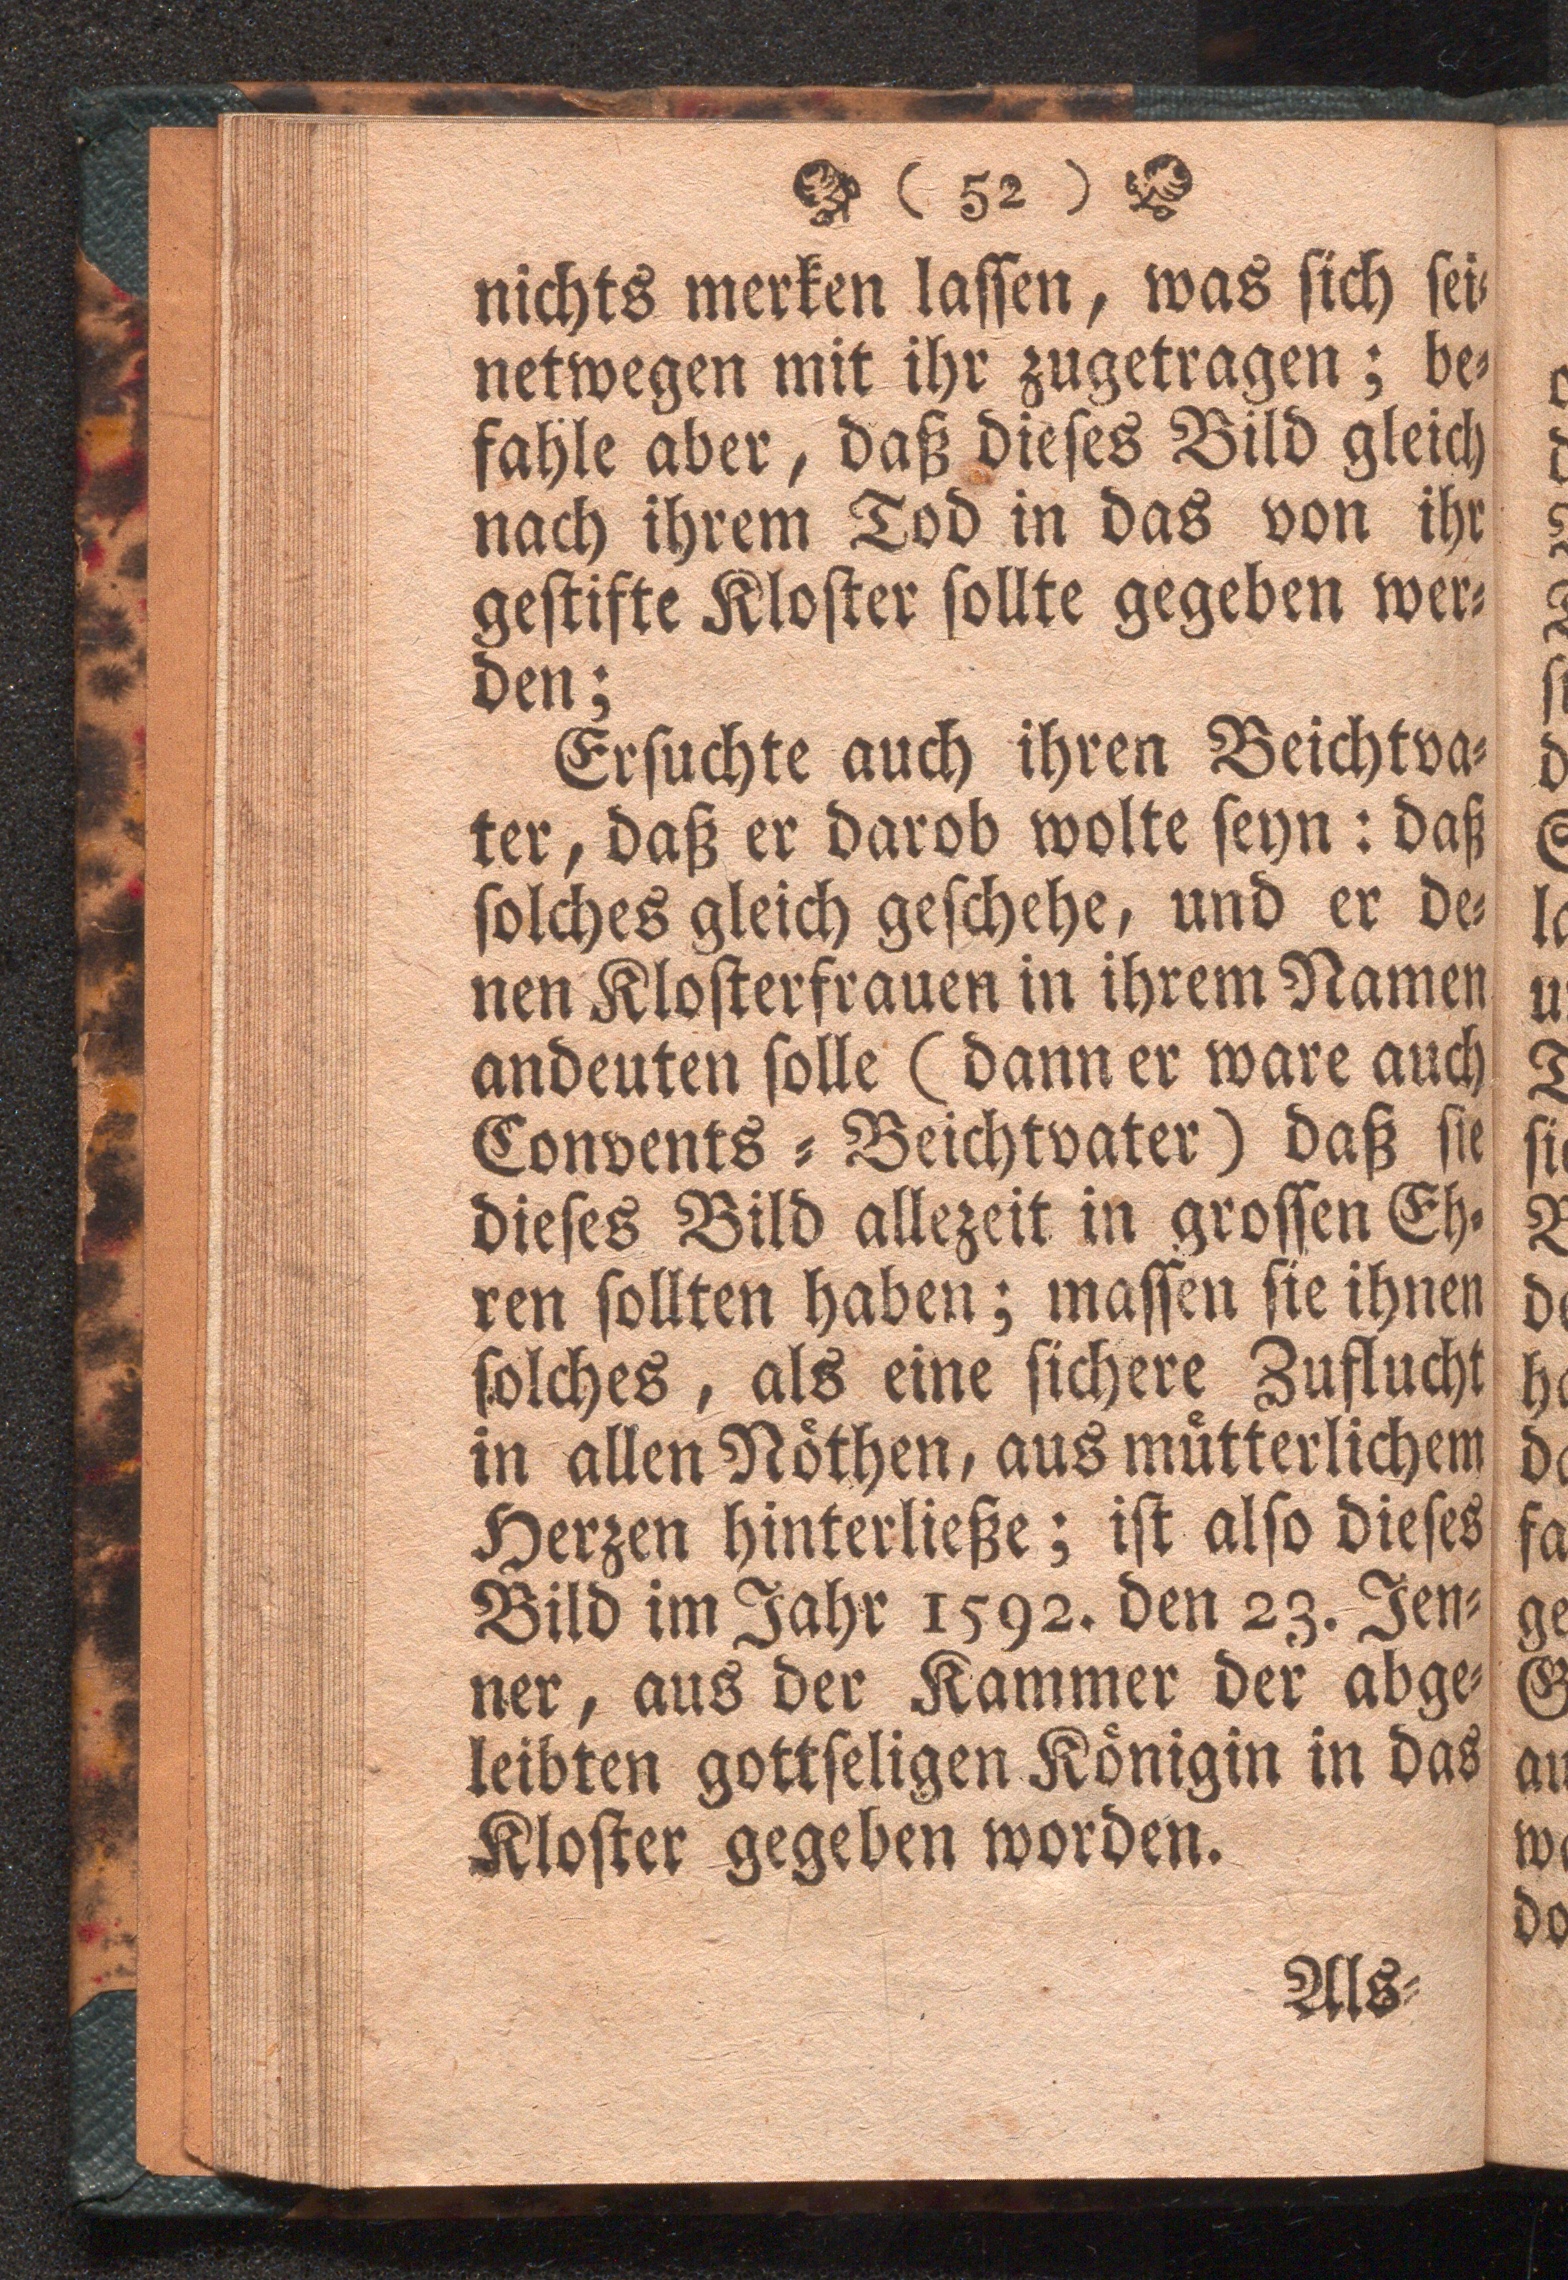 ( 52 )
nichts merken laſſen, was ſich ſei⸗
netwegen mit ihr zugetragen; be⸗
fahle aber, daß dieſes Bild gleich
nach ihrem Tod in das von ihr
geſtifte Kloſter ſollte gegeben wer⸗
den;
Erſuchte auch ihren Beichtva⸗
ter, daß er darob wolte ſeyn: daß
ſolches gleich geſchehe, und er de⸗
nen Kloſterfrauen in ihrem Namen
andeuten ſolle (dann er ware auch
Convents⸗Beichtvater) daß ſie
dieſes Bild allezeit in groſſen Eh⸗
ren ſollten haben; maſſen ſie ihnen
ſolches, als eine ſichere Zuflucht
in allen Nöthen, aus mütterlichem
Herzen hinterließe; iſt alſo dieſes
Bild im Jahr 1592. den 23. Jen⸗
ner, aus der Kammer der abge⸗
leibten gottſeligen Königin in das
Kloſter gegeben worden.
Als⸗